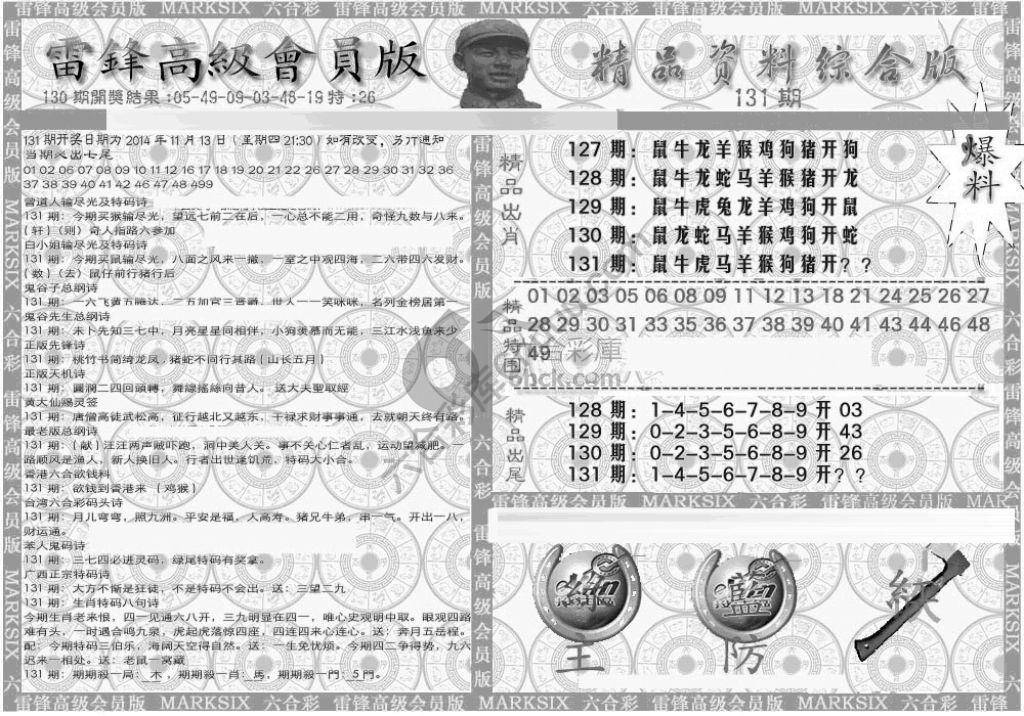 雷锋高级会员版 MARKSIX 六合彩 雷锋高级会员版 MARKSIX 六合彩 雷锋高级会员版 MARKSIX 六合彩 雷锋
雷鋒高級會員版
精品资料综合版
130 期開獎結果:05-49-09-03-46-19特:26
131 期
爆料
131 期开奖日期为 2014 年 11 月 13 日（星期四 21:30）如有改变，另行通知
当期必出七尾
01 02 06 07 08 09 10 11 12 16 17 18 19 20 21 22 26 27 28 29 30 31 32 36
37 38 39 40 41 42 46 47 48 499
曾道人输尽光及特码诗
131 期：今期买猴输尽光，望远七前二在后，一心总不能二用，奇怪九数与八来。
{轩}（则）奇人指路六参加
白小姐输尽光及特码诗
131 期：今期买鼠输尽光，八面之风来一撇，一室之中观四海，二六带四六发财。
{数}（去）鼠仔前行猪行后
鬼谷子总纲诗
131 期：一六飞黄五腾达，二五加官三晋爵，世人一一笑咪咪，名列金榜居第一
鬼谷先生总纲诗
131 期：未卜先知三七中，月亮星星同相伴，小狗羡慕而无能，三江水浅鱼来少
正版先锋诗
131 期：桃竹书简绮龙凤，猪蛇不同行其路{山长五月}
正版天机诗
131 期：圆润二四回頭轉，舞線摇絲向昔人。送大夫聖取經
黄大仙赐灵签
131 期：唐僧高徒武松高，征行越北又越东，干禄求财事事通，去就朝天终有路。
最老版总纲诗
131 期：(献)汪汪两声贼吓跑，洞中美人关。事不关心仁者乱，运动望减肥。一
路顺风是渔人，新人换旧人。行者出世逢饥荒，特码大小合。
香港六合欲钱料
131 期：欲钱到香港来 {鸡猴}
台湾六合彩码头诗
131 期：月儿弯弯，照九洲。平安是福，人高寿。猪兄牛弟，串一气。开出一八，
财运通。
苯人鬼码诗
131 期：三七四必进灵码，绿尾特码有奖拿。
广西正宗特码诗
131 期：大方不惭是狂徒，不是特码不会出。送：三望二九
131 期：生肖特码八句诗
今期生肖老来恨，四一见通六八开，三九明显在四一，唯心史观明中取。眼观四路
难有头，一时遇合鸣九泉，虎起虎落惊四座，四连四来心连心。送：奔月五岳程。
配：今期特码三伯乐，海阔天空得自然。送：一生免忧烦。今期四二争得势，九六
迟来一相处。送：老鼠一窝藏
131 期：期期殺一局：木，期期殺一肖：馬，期期殺一門：5 門。
精品出肖
127 期：鼠牛龙羊猴鸡狗猪开狗
128 期：鼠牛龙蛇马羊猴猪开龙
129 期：鼠牛虎兔龙羊鸡狗开鼠
130 期：鼠龙蛇马羊猴鸡狗开蛇
131 期：鼠牛虎马羊猴狗猪开？？
精品特围
01 02 03 05 06 08 09 11 12 13 18 21 24 25 26 27
28 29 30 31 33 35 36 37 38 39 40 41 43 44 46 48
49
彩庫
6hck.com
精品出尾
128 期：1-4-5-6-7-8-9 开 03
129 期：0-2-3-5-6-8-9 开 43
130 期：0-2-3-5-6-8-9 开 26
131 期：1-4-5-6-7-8-9 开？？
雷锋高级会员版 MARKSIX 六合彩 雷锋高级会员版 MARK
主
防
雷锋高级会员版 MARKSIX 六合彩 雷锋高级会员版 MARKSIX 六合彩 雷锋高级会员版 MARKSIX 六合彩 雷锋